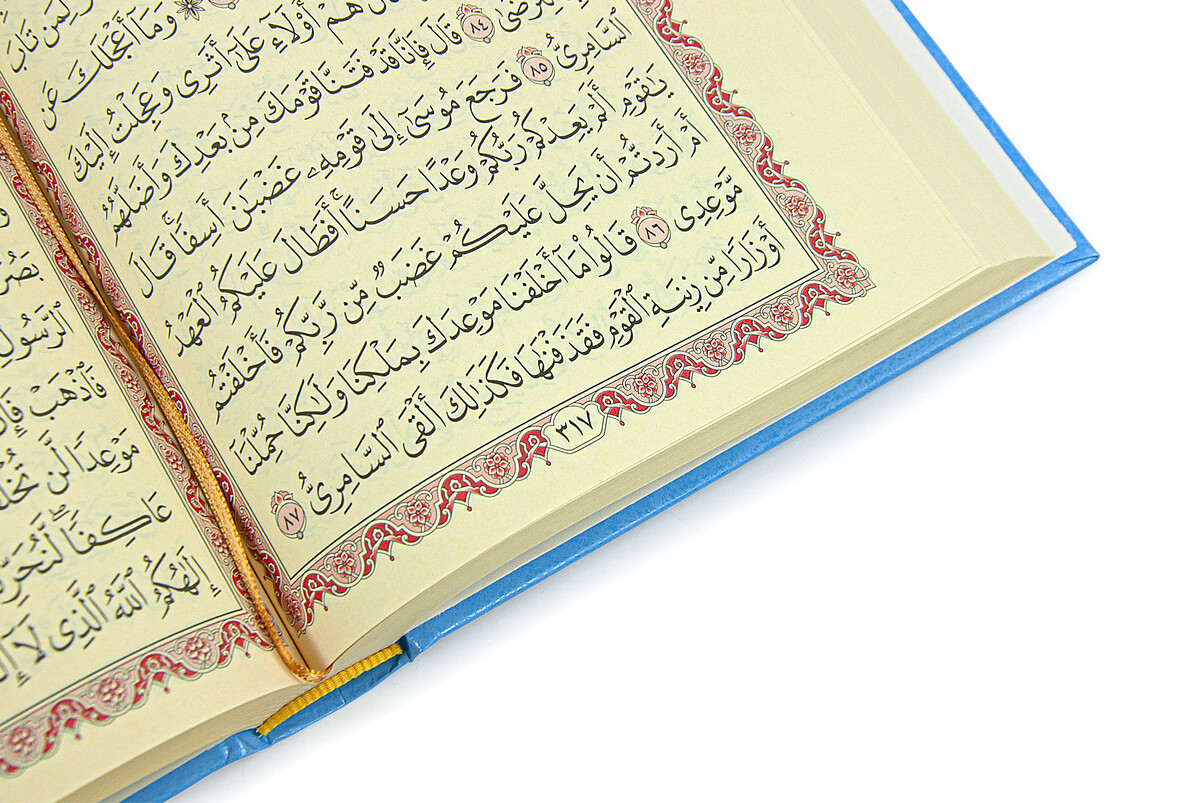 لِّمَن تَابَ
وَمَآ أَعْجَلَكَ عَن
هُمْ أُوْلَآءِ عَلَىٰٓ أَثَرِى وَعَجِلْتُ إِلَيْكَ
لِتَرْضَىٰ ٨٤ قَالَ فَإِنَّا قَدْ فَتَنَّا قَوْمَكَ مِنۢ بَعْدِكَ وَأَضَلَّهُمُ
ٱلسَّامِرِىُّ ٨٥ فَرَجَعَ مُوسَىٰٓ إِلَىٰ قَوْمِهِۦ غَضْبَٰنَ أَسِفًا قَالَ
يَٰقَوْمِ أَلَمْ يَعِدْكُمْ رَبُّكُمْ وَعْدًا حَسَنًا أَفَطَالَ عَلَيْكُمُ ٱلْعَهْدُ
أَمْ أَرَدتُّمْ أَن يَحِلَّ عَلَيْكُمْ غَضَبٌ مِّن رَّبِّكُمْ فَأَخْلَفْتُم
مَّوْعِدِى ٨٦ قَالُواْ مَآ أَخْلَفْنَا مَوْعِدَكَ بِمَلْكِنَا وَلَٰكِنَّا حُمِّلْنَآ
أَوْزَارًا مِّن زِينَةِ ٱلْقَوْمِ فَقَذَفْنَٰهَا فَكَذَٰلِكَ أَلْقَى ٱلسَّامِرِىُّ ٨٧
٣١٧
ٱلرَّسُولِ
فَٱذْهَبْ
مَوْعِدًا لَّن
عَاكِفًا
إِلَٰهُكُمُ ٱللَّهُ ٱلَّذِى لَآ